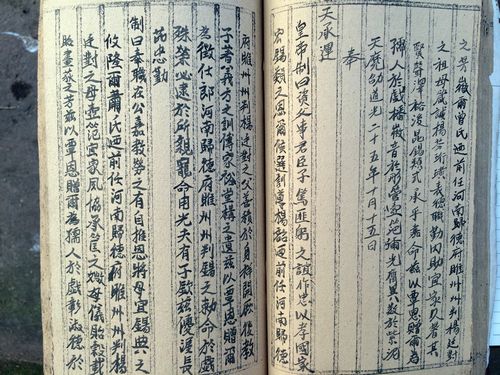 之勞徽爾曾氏迺前任河南歸德府睢州州判楊廷對
之祖母箴誡揚芬珩璜表德職勤内助宜家久著其
賢聲澤裕後昆錫類式承乎嘉命兹以覃恩贈爾為
孺人於戲播徽音於彤管壼範彌光膺異數於紫泥
天庥劭道光二十五年十月十五日
奉
天承運
皇帝制曰資父事君臣子篤匪躬之誼作忠以孝國家
宏錫類之恩爾候選訓導楊迺前任河南歸德
府睢州州判楊廷對之父善積於身祥開厥後教
子著義方之訓傳家裕堂構之遺兹以覃恩贈爾
為徵仕郎河南歸德府睢州州判錫之勅命於戲
殊榮必逮於所親寵命用光夫有子歟兹優渥長
荷忠勤
制曰奉職在公嘉教勞之有自推恩將母宜錫典之
攸隆爾蕭氏迺前任河南歸德府睢州州判楊
廷對之母壼範宜家夙協承筐之媺母儀貽穀載
昭畫荻之芳兹以覃恩贈爾為孺人於戲彰淑德於